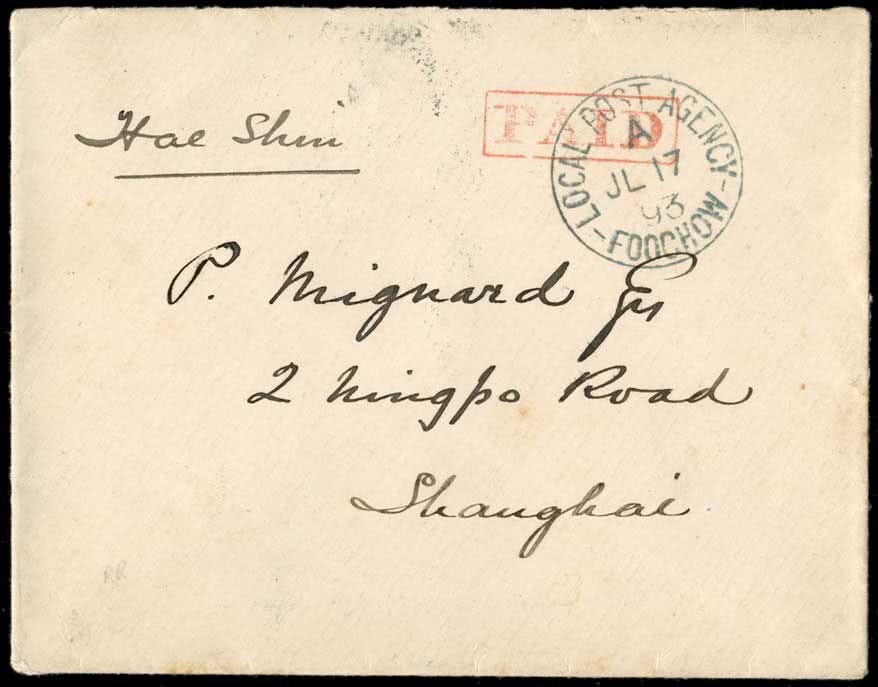 Hae Shin
PAID
LOCAL POST AGENCY - FOOCHOW -
A
JL 17
93
P. Mignard Esq
2 Ningpo Road
Shanghai
RR